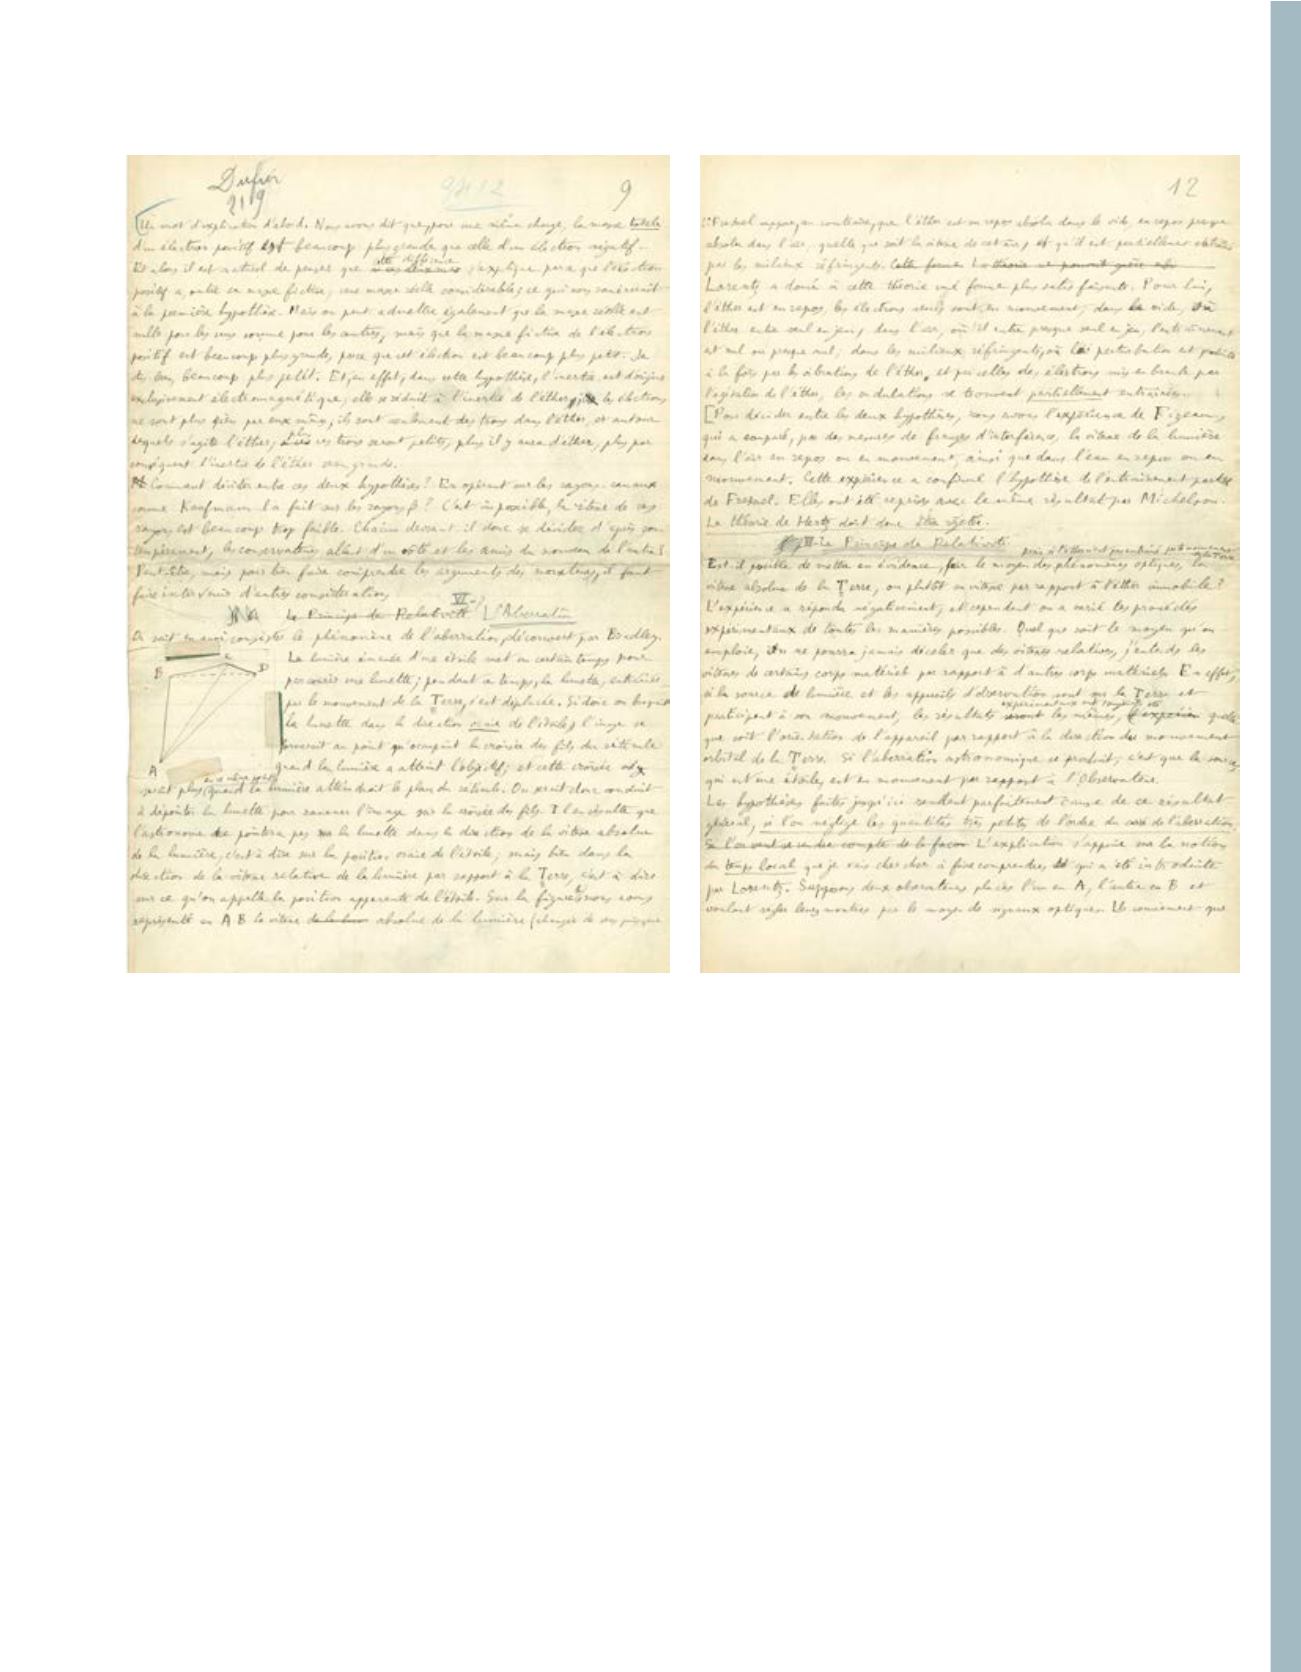 Dufier
219
9 & 12
9
Un mot d'explication d'abord. Nous avons dit que, pour une même charge, la masse totale
d'un électron positif est beaucoup plus grande que celle d'un électron négatif.
Et alors il est naturel de penser que cette différence s'explique parce que l'électron
positif a, outre sa masse fictive, une masse réelle considérable; ce qui nous ramènerait
à la première hypothèse. Mais on peut admettre également que la masse réelle est
nulle pour les uns comme pour les autres, mais que la masse fictive de l'électron
positif est beaucoup plus grande, parce que cet électron est beaucoup plus petit. Je
dis bien, beaucoup plus petit. Et, en effet, dans cette hypothèse, l'inertie est d'origine
exclusivement électromagnétique; elle se réduit à l'inertie de l'éther; les électrons
ne sont plus rien par eux mêmes; ils sont seulement des trous dans l'éther, et autour
desquels s'agite l'éther; plus ces trous seront petits, plus il y aura d'éther, plus par
conséquent l'inertie de l'éther sera grande.
Comment décider entre ces deux hypothèses? En opérant sur les rayons canaux
comme Kaufmann l'a fait sur les rayons β? C'est impossible; la vitesse de ces
rayons est beaucoup trop faible. Chacun devrait-il donc se décider d'après son
tempérament, les conservateurs allant d'un côté et les amis du nouveau de l'autre?
Peut-être, mais pour bien faire comprendre les arguments des novateurs, il faut
faire intervenir d'autres considérations
VI- Le Principe de Relativité L'Aberration
On sait en quoi consiste le phénomène de l'aberration, découvert par Bradley.
La lumière émanée d'une étoile met un certain temps pour
parcourir une lunette; pendant ce temps, la lunette, entraînée
par le mouvement de la Terre, s'est déplacée. Si donc on braquait
la lunette dans la direction vraie de l'étoile, l'image se
formerait au point qu'occupait la croisée des fils du réticule
quand la lumière a atteint l'objectif; et cette croisée ne
serait plus en ce même point quand la lumière atteindrait le plan du réticule. On serait donc conduit
à dépointer la lunette pour ramener l'image sur la croisée des fils. Il en résulte que
l'astronome ne pointera pas la lunette dans la direction de la vitesse absolue
de la lumière, c'est à dire sur la position vraie de l'étoile; mais bien dans la
direction de la vitesse relative de la lumière par rapport à la Terre, c'est à dire
sur ce qu'on appelle la position apparente de l'étoile. Sur la figure nous avons
représenté en A B la vitesse absolue de la lumière (changée de sens puisque
B
C
D
A
12
Fresnel suppose, au contraire, que l'éther est en repos absolu dans le vide, en repos presque
absolu dans l'air, quelle que soit la vitesse de cet air, et qu'il est partiellement entraîné
par les milieux réfringents.
Lorentz a donné à cette théorie une forme plus satisfaisante. Pour lui,
l'éther est en repos, les électrons seuls sont en mouvement; dans le vide, où
l'éther entre seul en jeu, dans l'air, où il entre presque seul en jeu, l'entraînement
est nul ou presque nul; dans les milieux réfringents, où la perturbation est produite
à la fois par les vibrations de l'éther, et par celles des électrons mis en branle par
l'agitation de l'éther, les ondulations se trouvent partiellement entraînées.
Pour décider entre les deux hypothèses, nous avons l'expérience de Fizeau,
qui a comparé, par des mesures de franges d'interférence, la vitesse de la lumière
dans l'air en repos ou en mouvement, ainsi que dans l'eau en repos ou en
mouvement. Cette expérience a confirmé l'hypothèse de l'entraînement partiel
de Fresnel. Elles ont été reprises avec le même résultat par Michelson.
La théorie de Hertz doit donc être rejetée.
VII- Le Principe de Relativité
Est-il possible de mettre en évidence, par le moyen des phénomènes optiques, la
vitesse absolue de la Terre, ou plutôt sa vitesse par rapport à l'éther immobile?
L'expérience a répondu négativement, et cependant on a varié les procédés
expérimentaux de toutes les manières possibles. Quel que soit le moyen qu'on
emploie, on ne pourra jamais déceler que des vitesses relatives, j'entends les
vitesses de certains corps matériels par rapport à d'autres corps matériels. En effet,
si la source de lumière et les appareils d'observation sont sur la Terre et
participent à son mouvement, les résultats expérimentaux ont toujours été les mêmes, quelle
que soit l'orientation de l'appareil par rapport à la direction du mouvement
orbital de la Terre. Si l'aberration astronomique se produit, c'est que la source,
qui est une étoile, est en mouvement par rapport à l'observateur.
Les hypothèses faites jusqu'ici rendent parfaitement compte de ce résultat
général, si l'on néglige les quantités très petites de l'ordre du carré de l'aberration.
Si l'on veut se rendre compte de la façon L'explication s'appuie sur la notion
du temps local que je vais chercher à faire comprendre, et qui a été introduite
par Lorentz. Supposons deux observateurs placés l'un en A, l'autre en B et
voulant régler leurs montres par le moyen de signaux optiques. Ils conviennent que